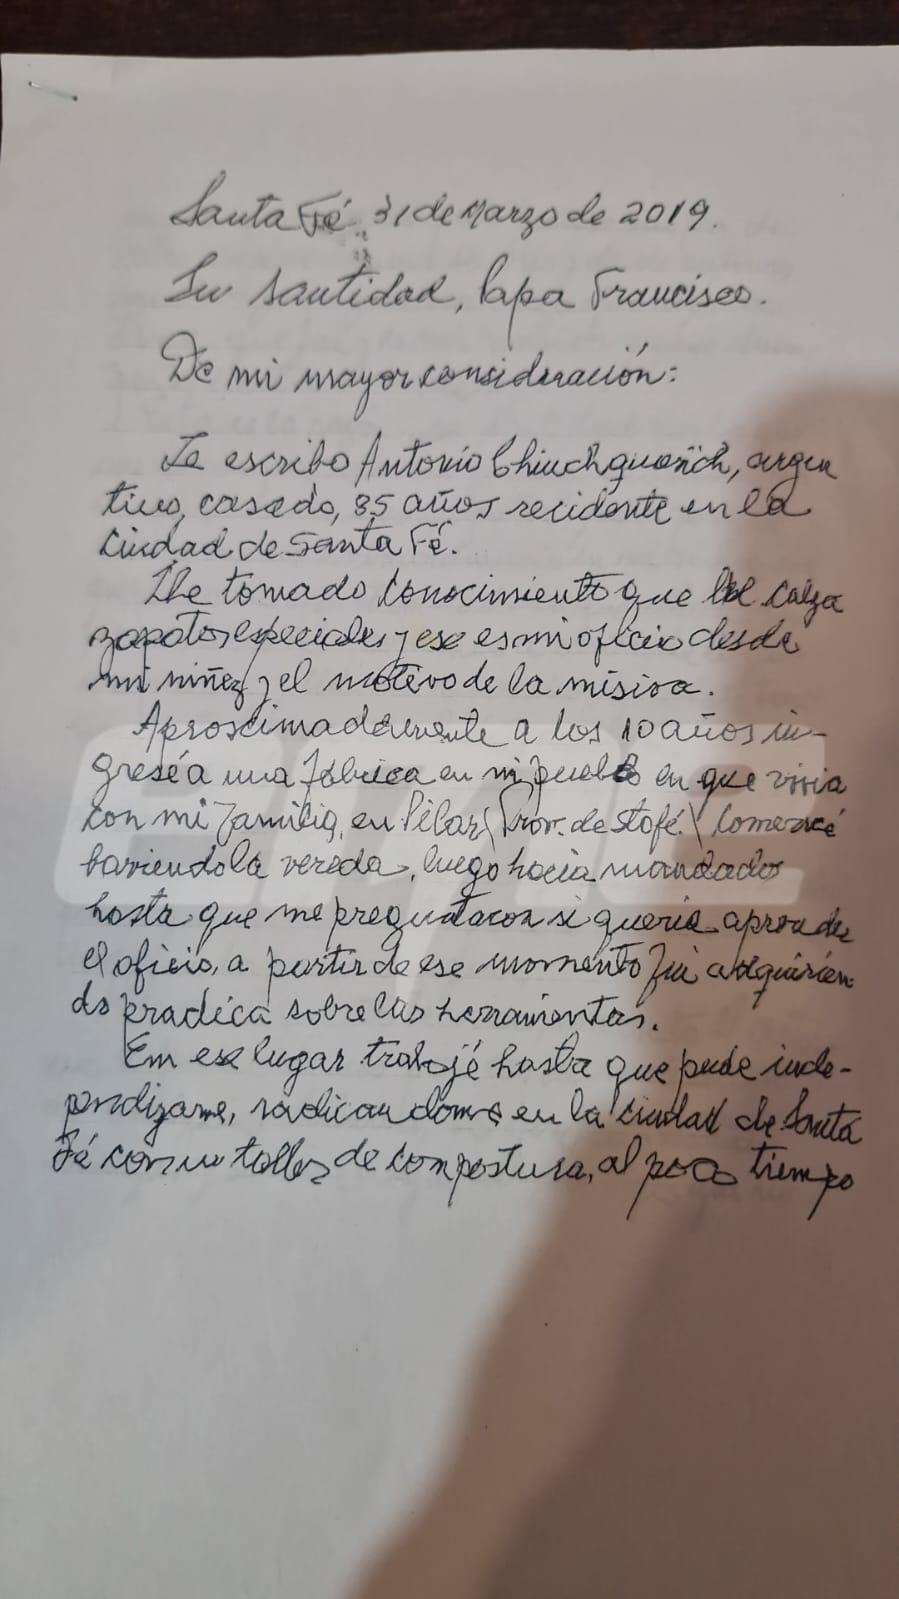 Santa Fé, 31 de Marzo de 2019.
Su santidad, Papa Francisco.
De mi mayor consideración:
Le escribo Antonio, argen
tino, casado, 85 años recidente en la
Ciudad de Santa Fé.
He tomado conocimiento que Ud calza
zapatos especiales y ese es mi oficio desde
mi niñez y el motivo de la misiva.
Aproscimadamente a los 10 años in-
gresé a una fábrica en mi pueblo en que vivia
con mi familia, en Pilar (Prov. de Sta fé.) Comencé
barriendo la vereda, luego hacia mandados
hasta que me preguntaron si queria aprender
el oficio, a partir de ese momento fui adquirien
do practica sobre las herramientas.
Em ese lugar trabajé hasta que pude inde-
pendizarme, radicandome en la Ciudad de Santa
Fé con un taller de compostura, al poco tiempo